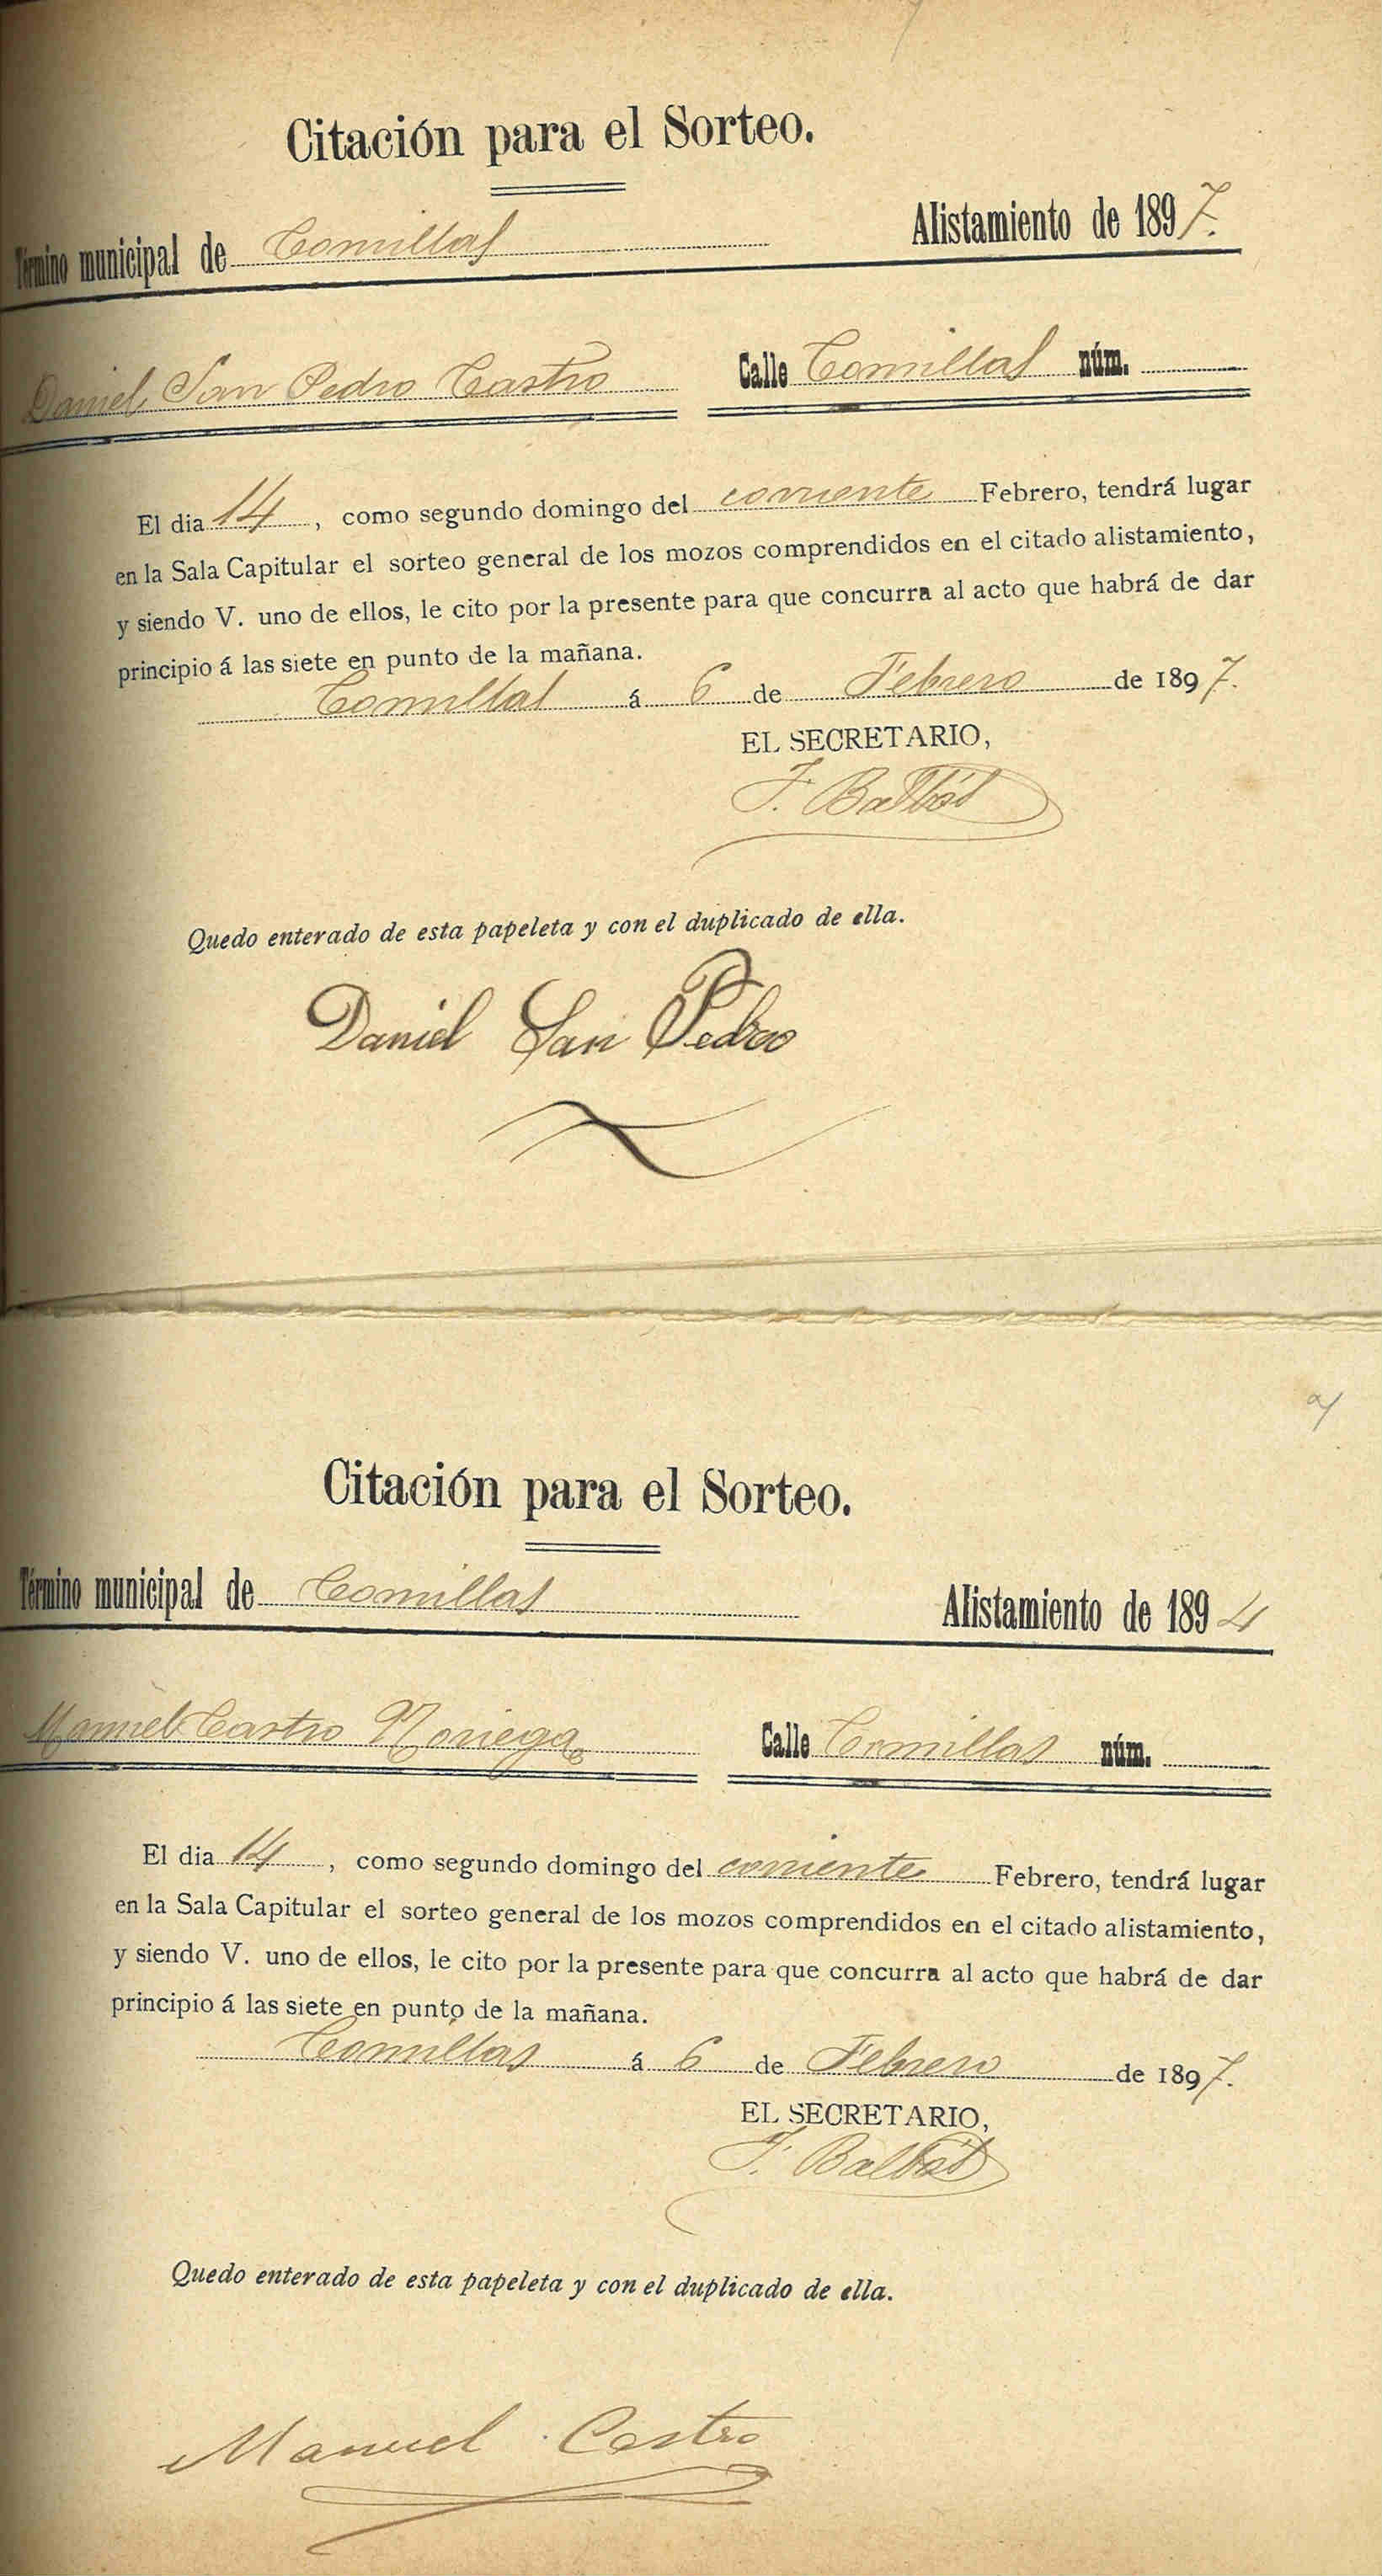 Citación para el Sorteo.
Término municipal de Comillas
Alistamiento de 1897.
Daniel San Pedro Castro
Calle Comillas núm.
El dia 14, como segundo domingo del corriente Febrero, tendrá lugar
en la Sala Capitular el sorteo general de los mozos comprendidos en el citado alistamiento,
y siendo V. uno de ellos, le cito por la presente para que concurra al acto que habrá de dar
principio á las siete en punto de la mañana.
Comillas á 6 de Febrero de 1897.
EL SECRETARIO,
F. Balbás
Quedo enterado de esta papeleta y con el duplicado de ella.
Daniel San Pedro
Citación para el Sorteo.
Término municipal de Comillas
Alistamiento de 1894
Manuel Castro Noriega
Calle Comillas núm.
El dia 14, como segundo domingo del corriente Febrero, tendrá lugar
en la Sala Capitular el sorteo general de los mozos comprendidos en el citado alistamiento,
y siendo V. uno de ellos, le cito por la presente para que concurra al acto que habrá de dar
principio á las siete en punto de la mañana.
Comillas á 6 de Febrero de 1897.
EL SECRETARIO,
F. Balbás
Quedo enterado de esta papeleta y con el duplicado de ella.
Manuel Castro